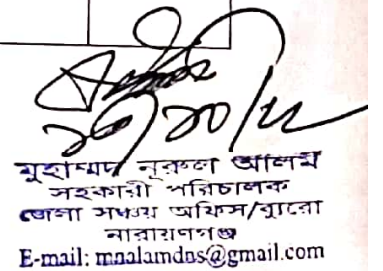 ২৩/১০/২২
মুহাম্মদ নূরুল আলম
সহকারী পরিচালক
জেলা সঞ্চয় অফিস/ব্যুরো
নারায়ণগঞ্জ
E-mail: mnalamdns@gmail.com